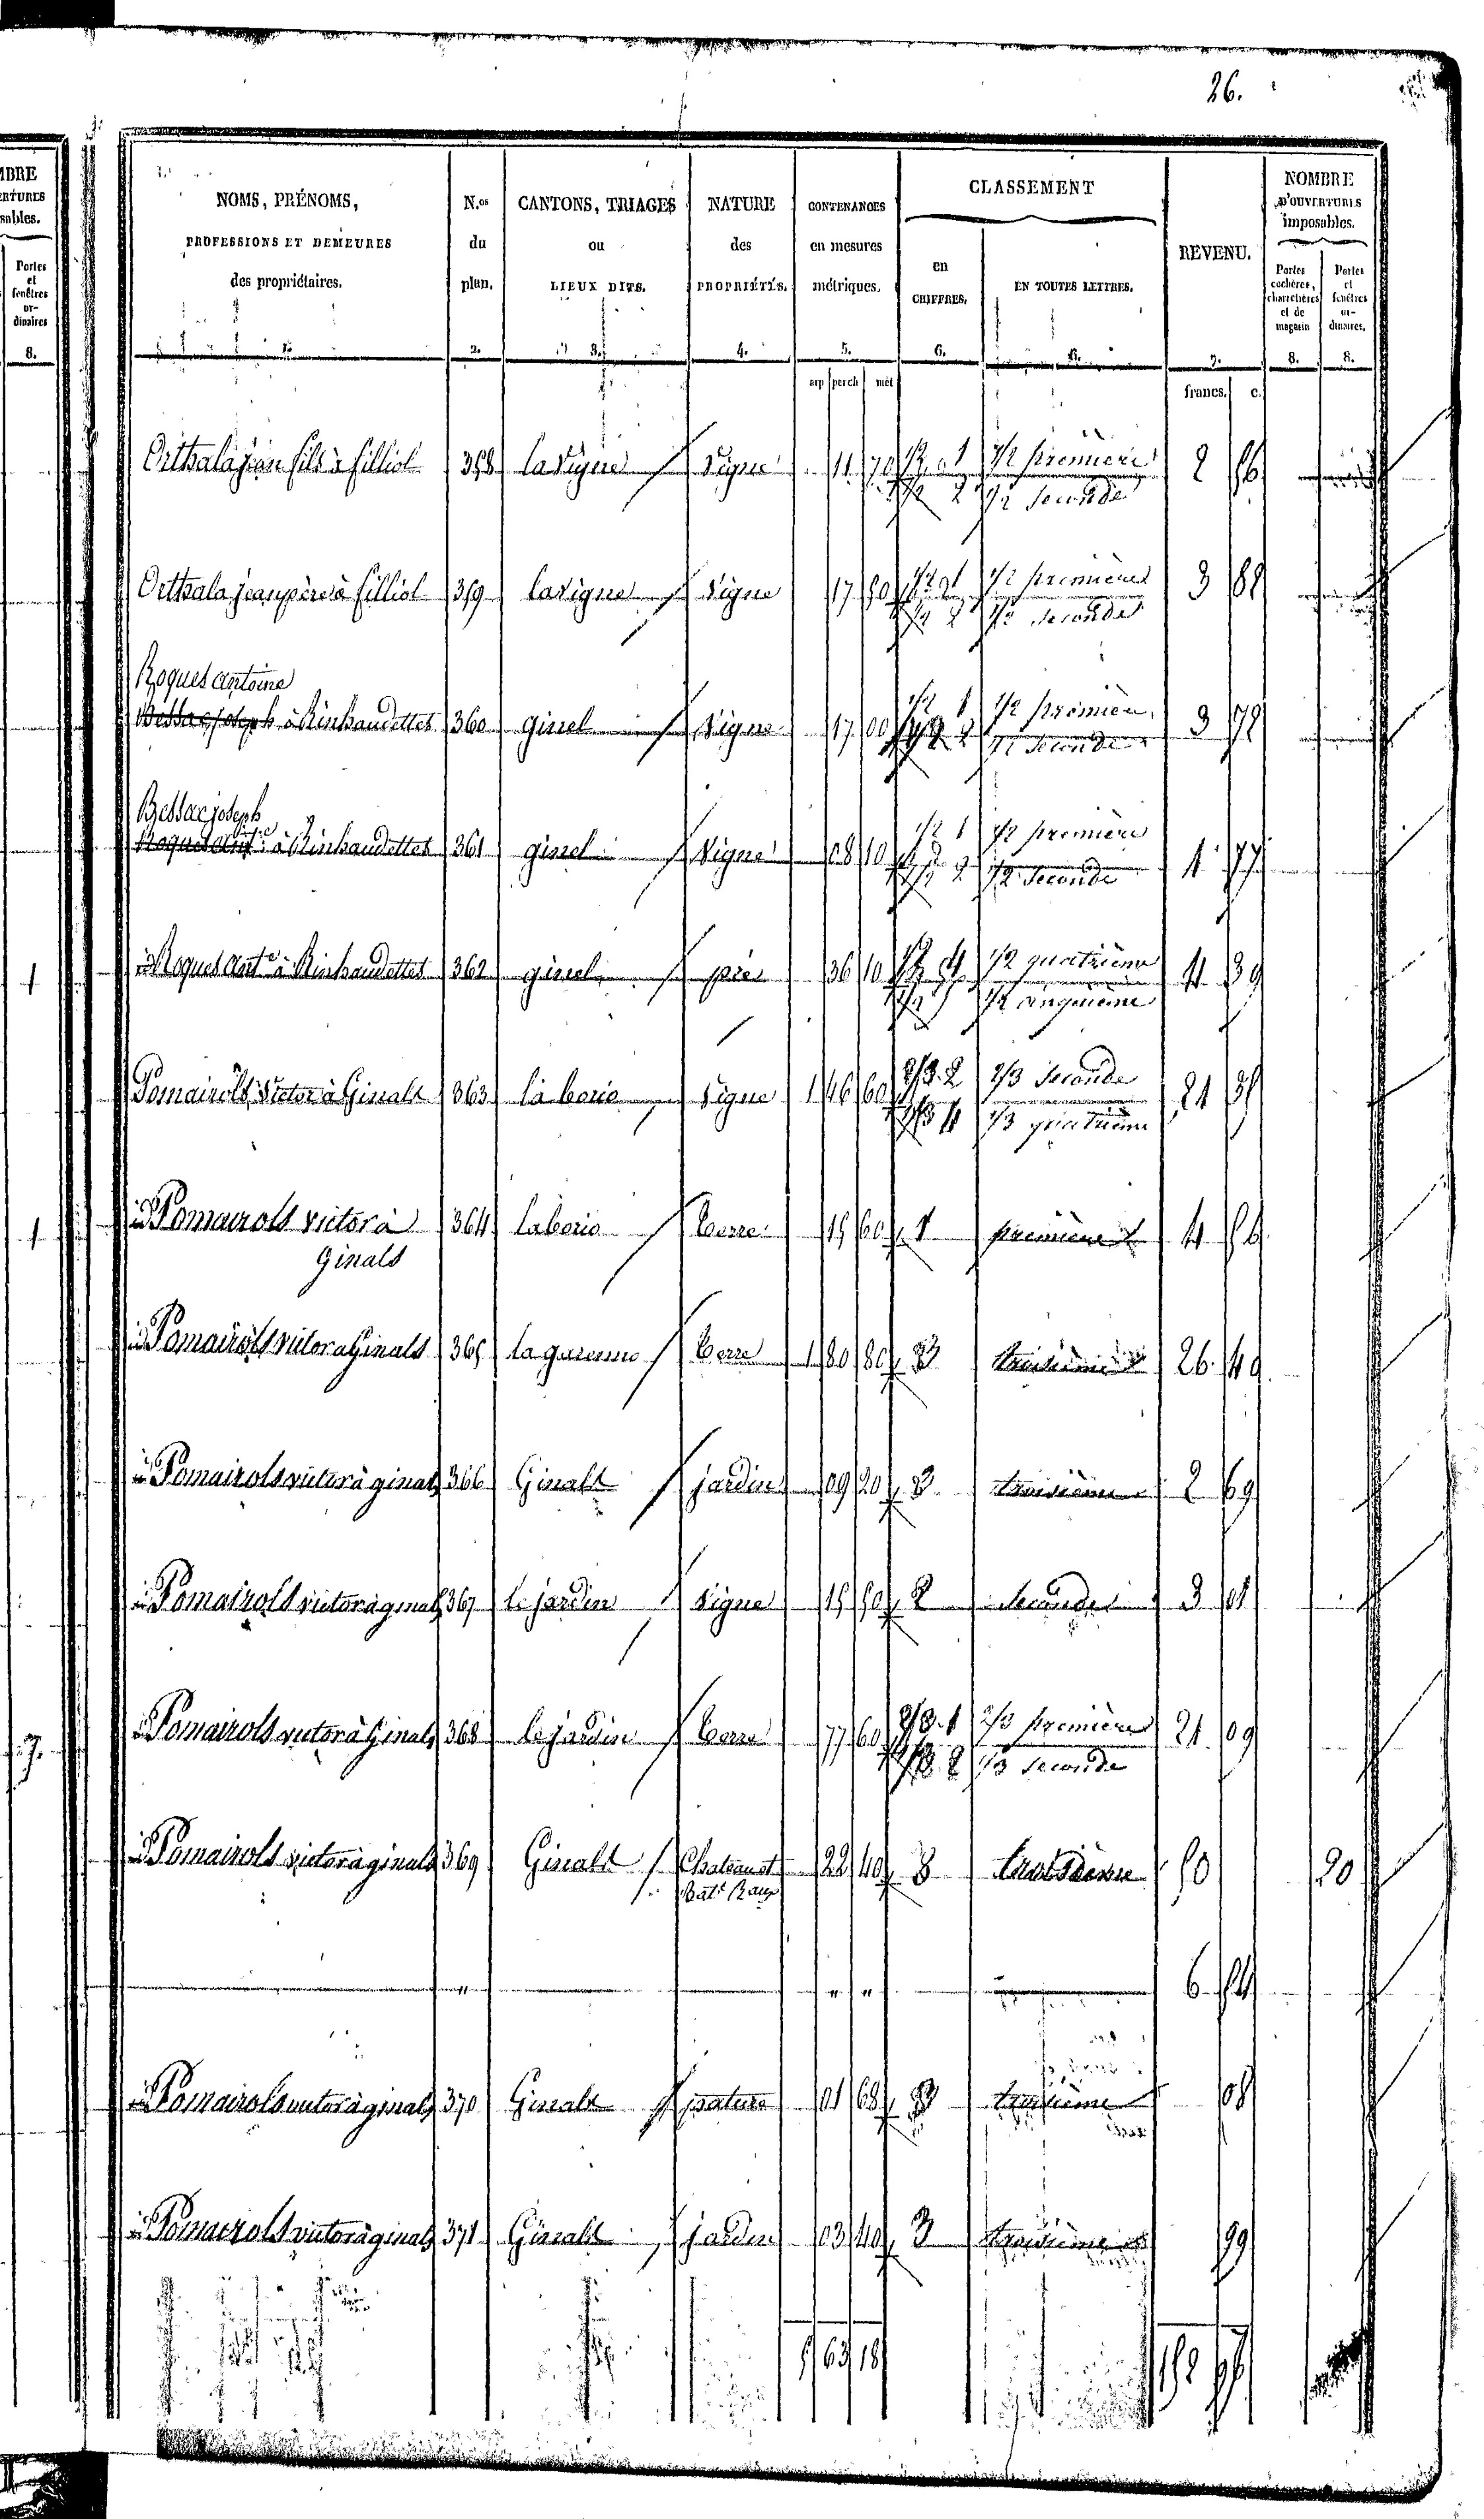 26.
MBRE
ERTURES
sables.
Portes
et
fenêtres
or-
dinaires
8.
NOMS, PRÉNOMS,
PROFESSIONS ET DEMEURES
des propriétaires.
1.
N.os
du
plan.
2.
CANTONS, TRIAGES
ou
LIEUX DITS.
3.
NATURE
des
PROPRIÉTÉS.
4.
CONTENANCES
en mesures
métriques.
5.
CLASSEMENT
en
CHIFFRES.
6.
EN TOUTES LETTRES.
REVENU.
7.
NOMBRE
D'OUVERTURES
imposables.
Portes
cochères,
charretières
et de
magasin
8.
Portes
et
fenêtres
or-
dinaires.
8.
arp perch mèt
francs. c.
Orthala jean fils à filliol 358 la Vigne Vigne 11 70 1/2 1 1/2 première 2 56
1/2 2 1/2 seconde
Orthala jean père à filliol 359 la vigne Vigne 17 50 1/2 1 1/2 première 3 82
1/2 2 1/2 seconde
Roques antoine
Bessac joseph à Rinhaudettes 360 ginel Vigne 17 00 1/2 1 1/2 première 3 72
1/2 2 1/2 seconde
Bessac joseph
Roques ant.e à Rinhaudettes 361 ginel Vigne 08 10 1/2 1 1/2 première 1 77
1/2 2 1/2 seconde
Roques ant.e à Rinhaudettes 362 ginel prés 36 10 1/2 4 1/2 quatrième 4 39
1/2 5 1/2 cinquième
Pomairols Victor à Ginals 363 la borio Vigne 1 46 60 2/3 2 2/3 seconde 21 51
1/3 4 1/3 quatrième
Pomairols victor à 364 la borio terre 15 60 1 première 4 56
Ginals
Pomairols victor a Ginals 365 la garenne terre 1 80 80 3 troisième 26 49
Pomairols victor à ginals 366 Ginals jardin 09 20 3 troisième 2 69
Pomairols victor à ginals 367 le jardin Vigne 15 50 2 seconde 3 01
Pomairols victor à Ginals 368 le jardin terre 77 60 2/3 1 2/3 première 21 09
1/3 2 1/3 seconde
Pomairols victor à ginals 369 Ginals Chateau et 22 40 3 troisième 50 20
Bat.t
" " " 6 54
Pomairols victor à ginals 370 Ginals pature 01 68 3 troisième 08
Pomairols victor à ginals 371 Ginals jardin 03 40 3 troisième 99
5 63 18